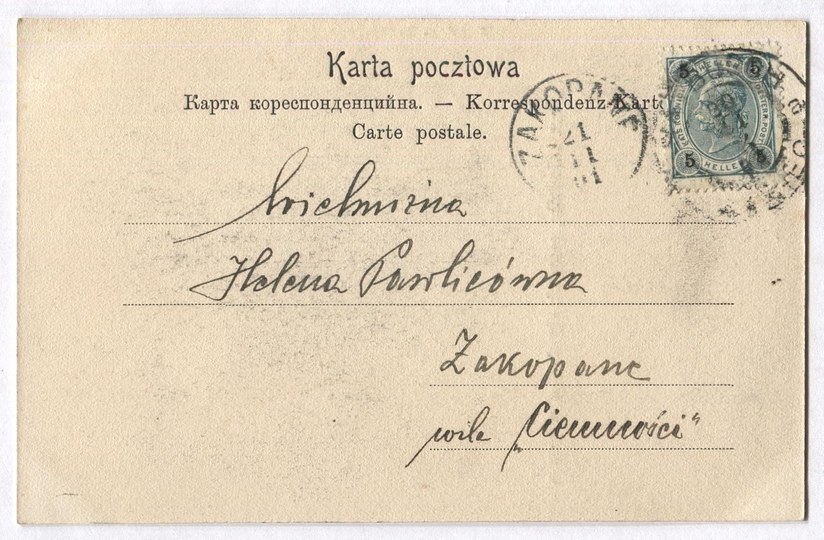 Karta pocztowa
Карта кореспонденцийна. — Korrespondenz-Karte
Carte postale.
ZAKOPANE
21
01
5 5
5 5
HELLER
Wielmożna
Helena Pawlicówna
Zakopane
wila „Ciemności"